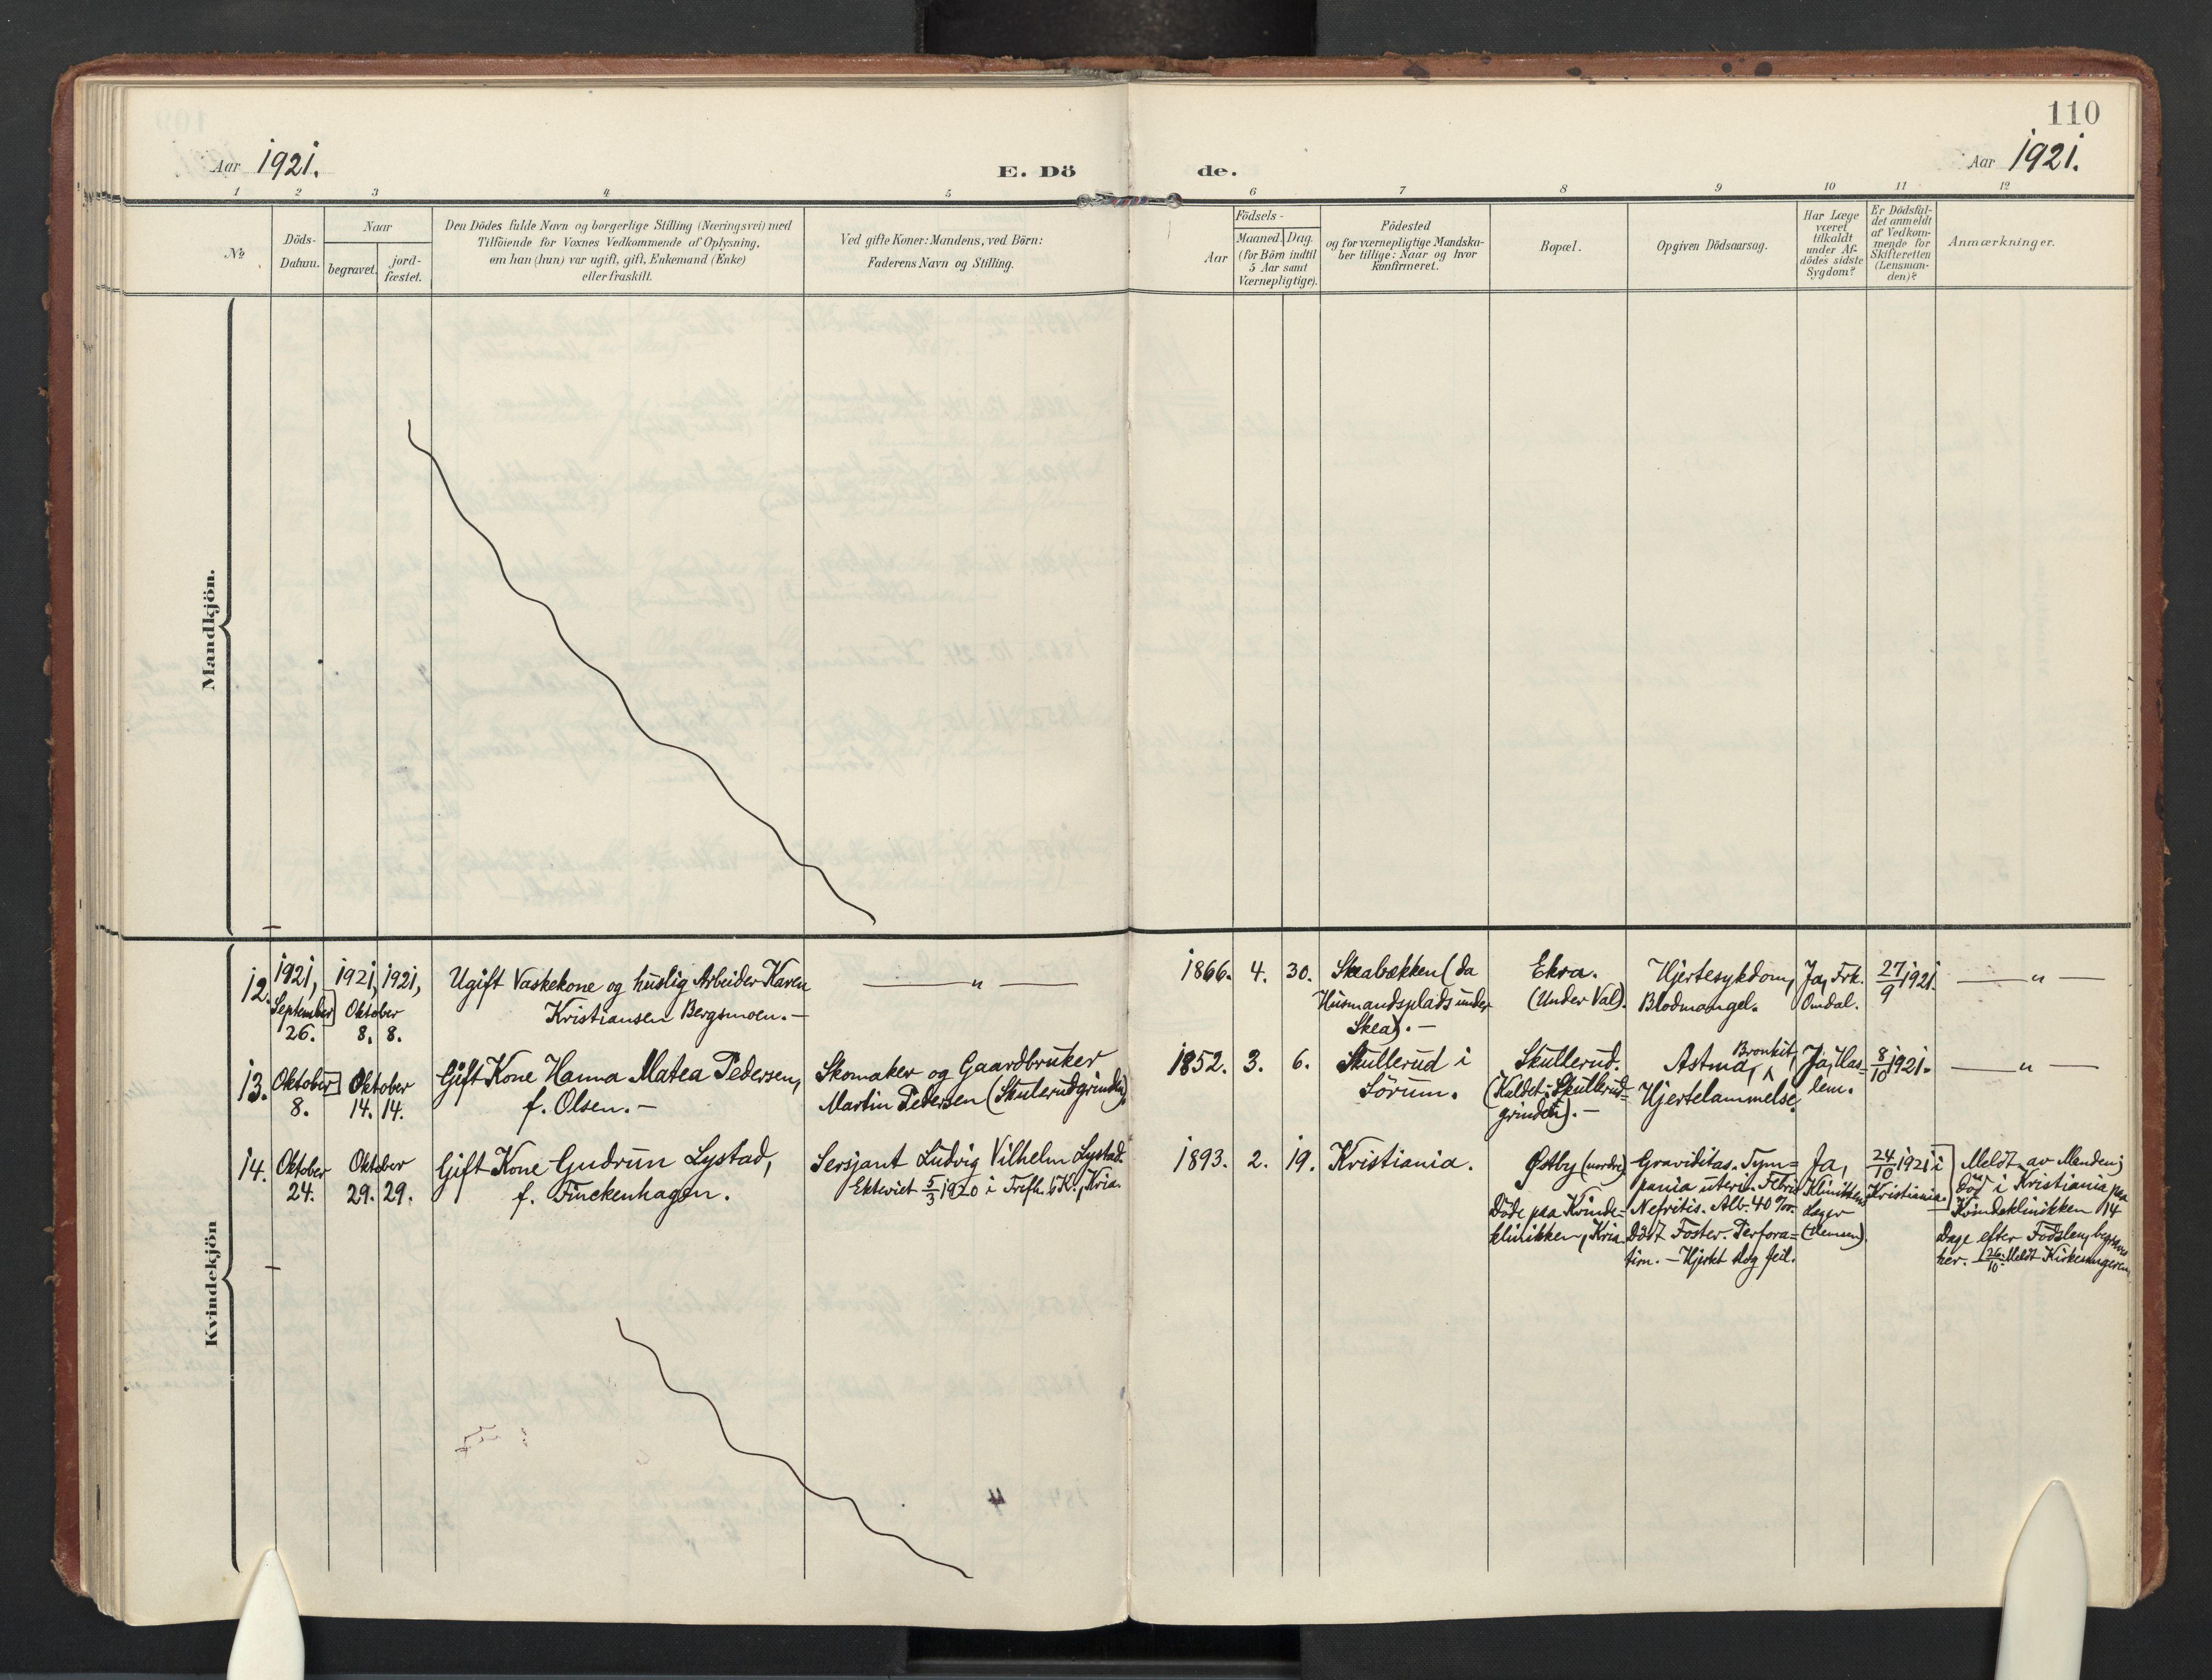 110
Aar 1921.
E. Dö de.
Aar 1921.
1 2 3 4 5 6 7 8 9 10 11 12
№
Döds-
Datum.
Naar
begravet.
jord-
fæstet.
Den Dödes fulde Navn og borgerlige Stilling (Næringsvei) med
Tilföiende for Voxnes Vedkommende af Oplysning,
om han (hun) var ugift, gift, Enkemand (Enke)
eller fraskilt.
Ved gifte Koner: Mandens, ved Börn:
Faderens Navn og Stilling.
Födsels-
Aar
Maaned. Dag.
(for Börn indtil
5 Aar samt
Værnepligtige).
Födested
og for værnepligtige Mandska-
ber tillige: Naar og hvor
konfirmeret.
Bopæl.
Opgiven Dödsaarsag.
Har Læge
været
tilkaldt
under Af-
dödes sidste
Sygdom?
Er Dödsfal-
det anmeldt
af Vedkom-
mende for
Skifteretten
(Lensman-
den)?
Anmærkninger.
Mandkjön.
Kvindekjön
12.
1921,
September
26.
1921, 1921,
Oktober
8. 8.
Ugift Vaskekone og huslig Arbeider Karen
Kristiansen Bergsmoen. —
— " —
1866. 4. 30.
Skeabækken (da
Husmandsplads under
Skea). —
Ekra.
(Under Val).
Hjertesykdom,
Blodmangel.
Ja, Frk.
Omdal.
27/9 1921.
— " —
13.
Oktober
8.
Oktober
14. 14.
Gift Kone Hanna Matea Pedersen,
f. Olsen. —
Skomaker og Gaardbruker
Martin Pedersen (Skulerudgrinden).
1852. 3. 6.
Skullerud i
Sörum.
Skullerud.
(Kaldet: Skullerud-
grinden). —
Bronkit,
Astma,
Hjertelammelse.
Ja, Has-
lem.
8/10 1921.
— " —
14.
Oktober
24.
Oktober
29. 29.
Gift Kone Gudrun Lystad,
f. Finckenhagen.
Sersjant Ludvig Vilhelm Lystad.
Ekteviet 5/3 1920 i Trefh. K., Kria.
1893. 2. 19.
Kristiania.
Østby (nordre)
Döde paa Kvinde-
klinikken, Kria.
Graviditas. Tym=
pania uteri. Febris
Nefritis. Alb. 40 ‰.
Dödt Foster. Perfora=
tion. — Hjertet slog feil.
Ja,
Klinikkens
Læger
24/10 1921 i
Kristiania.
Meldt av Manden;
död i Kristiania paa
Kvindeklinikken 14
Dage efter Födslen, begraves
her. 26/10. Meldt Kirkesangeren.